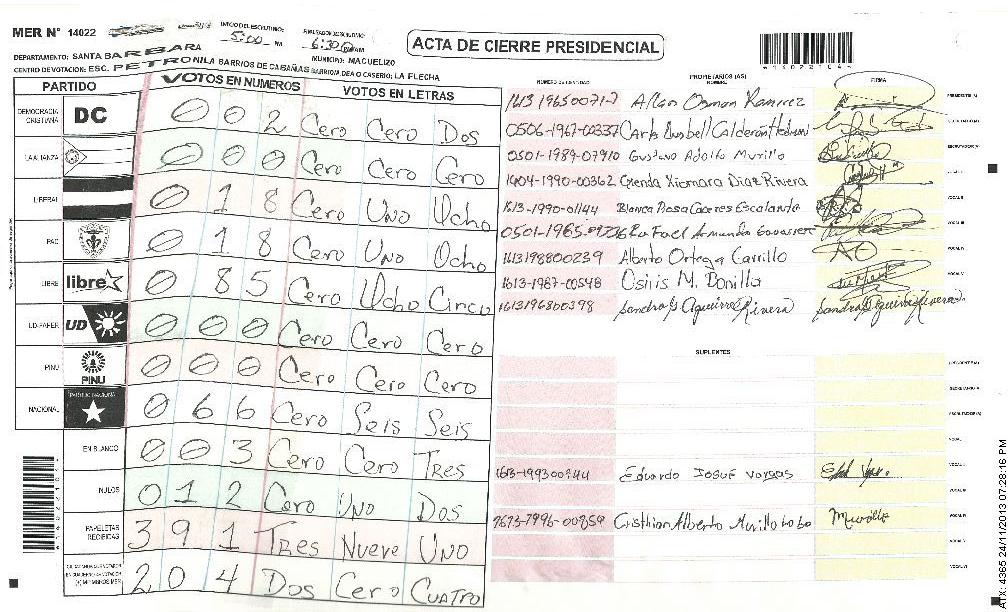 MER N° 14022
INICIO DE ESCRUTINIO: 5:00 PM
6:30 PM
ACTA DE CIERRE PRESIDENCIAL
DEPARTAMENTO: SANTA BARBARA
MUNICIPIO: MACUELIZO
CENTRO DE VOTACION: ESC. PETRONILA BARRIOS DE CABAÑAS BARRIO, ALDEA O CASERIO: LA FLECHA
PARTIDO VOTOS EN NUMEROS VOTOS EN LETRAS
DEMOCRACIA CRISTIANA DC 0 0 2 Cero Cero Dos
LA ALIANZA 0 0 0 Cero Cero Cero
LIBERAL 0 1 8 Cero Uno Ocho
PAC 0 1 8 Cero Uno Ocho
LIBRE libre 0 8 5 Cero Ocho Cinco
UD-FAPER UD 0 0 0 Cero Cero Cero
PINU PINU 0 0 0 Cero Cero Cero
NACIONAL PARTIDO NACIONAL 0 6 6 Cero Seis Seis
EN BLANCO 0 0 3 Cero Cero Tres
NULOS 0 1 2 Cero Uno Dos
PAPELETAS RECIBIDAS 3 9 1 Tres Nueve Uno
2 0 4 Dos Cero Cuatro
NUMERO DE IDENTIDAD PROPIETARIOS (AS) NOMBRE FIRMA
1613 19650071-7 Allan Osman Ramirez
0506-1967-00337 Carla Calderon
0501-1989-07910 Gustavo Adolfo Murillo
1404-1990-00362 Glenda Xiomara Diaz Rivera
1613-1990-01144 Blanca Rosa Caceres Escalante
0501-1965- Rafael Armando
1613198800239 Alberto Ortega Carrillo
1613-1987-00548 Osiris M. Bonilla
1613196800398 Sandra Aguirre Rivera Sandra Aguirre Rivera
SUPLENTES
1613-199300244 Eduardo Josue Vargas
Cristhian Alberto Murillo Lobo Murillo
4365 24/11/2013 07:28:16 PM